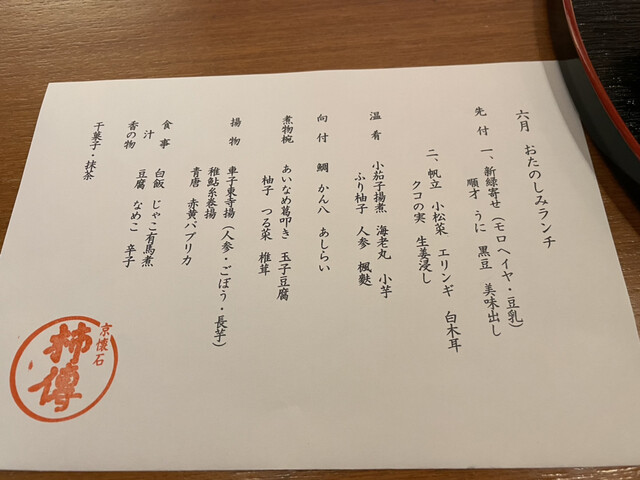 六月 おたのしみランチ
先付 一、新緑寄せ(モロヘイヤ・豆乳)
順才 うに 黒豆 美味出し
二、帆立 小松菜 エリンギ 白木耳
クコの実 生姜浸し
温肴 小茄子揚煮 海老丸 小芋
ふり柚子 人参 楓麩
向付 鯛 かん八 あしらい
煮物椀 あいなめ葛叩き 玉子豆腐
柚子 つる菜 椎茸
揚物 車子東寺揚(人参・ごぼう・長芋)
稚鮎糸巻揚
青唐 赤黄パプリカ
食事 白飯 じゃこ有馬煮
汁 豆腐 なめこ 辛子
香の物
干菓子・抹茶
京懐石
柿傳